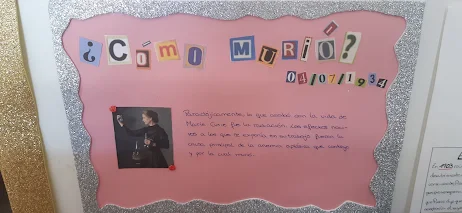 ¿Cómo MURIÓ?
04/07/1934
Paradójicamente, lo que acabó con la vida de
Marie Curie fue la radiación. Los efectos noci-
vos a los que se exponía en su trabajo fueron la
causa principal de la anemia aplásica que contrajo
y por la cual murió.